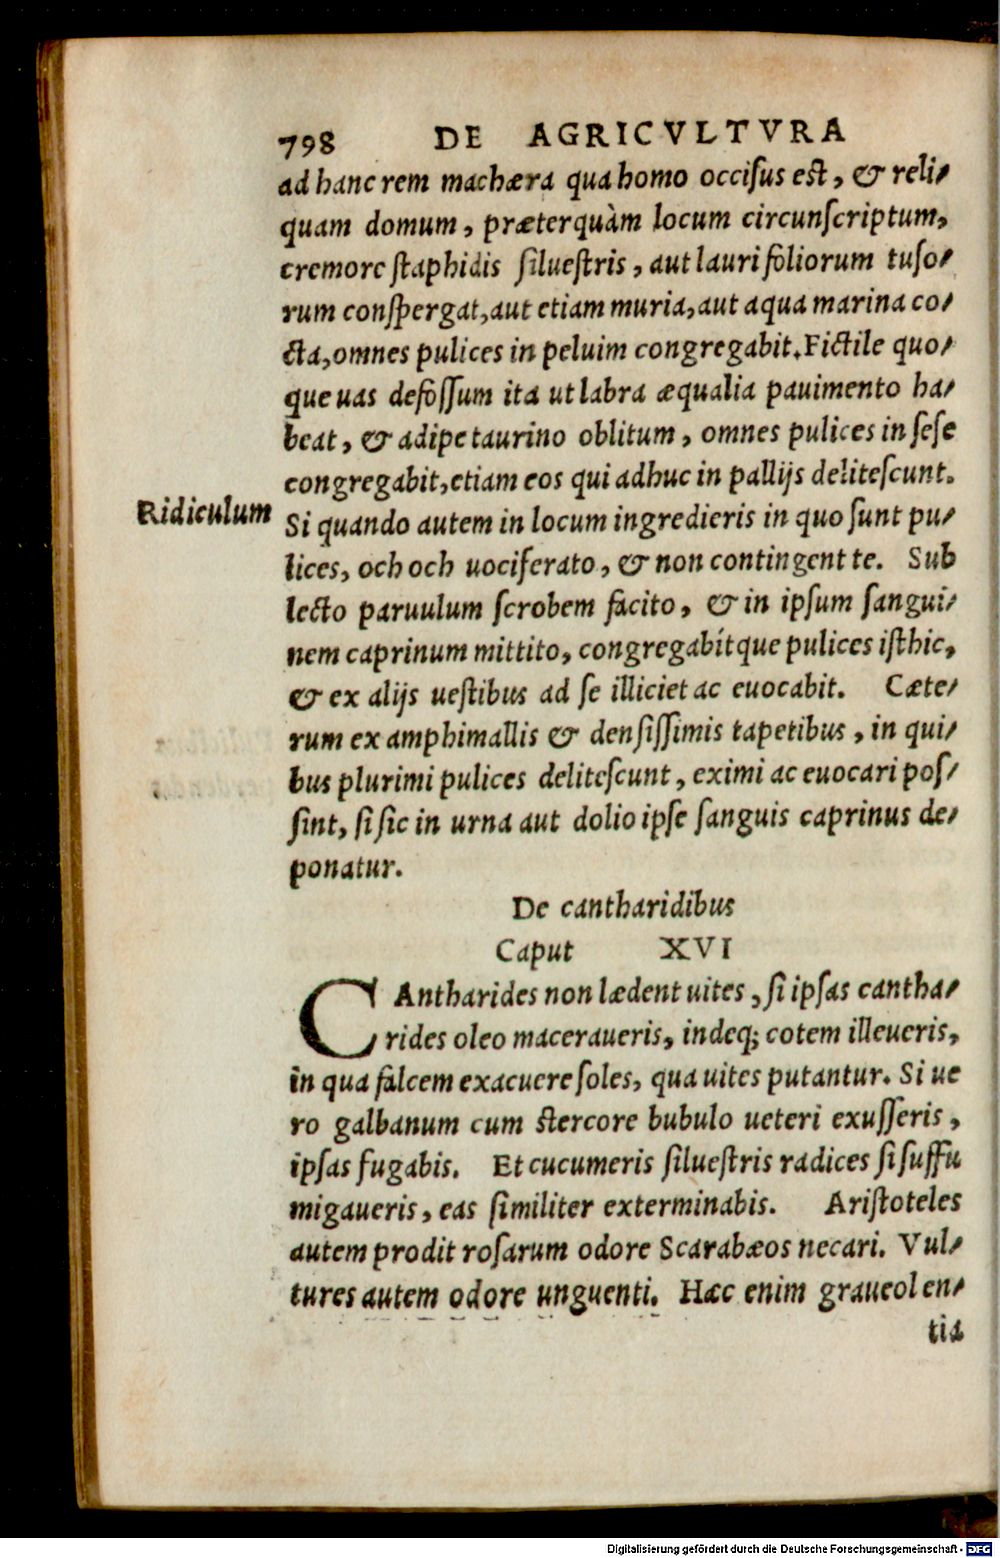 798 DE AGRICVLTVRA
ad hanc rem machæra qua homo occiſus eſt, & reli⸗
quam domum, præterquàm locum circunſcriptum,
cremore ſtaphidis ſilueſtris, aut lauri foliorum tuſo⸗
rum conſpergat, aut etiam muria, aut aqua marina co⸗
cta, omnes pulices in peluim congregabit. Fictile quo⸗
que uas defoſſum ita ut labra æqualia pauimento ha⸗
beat, & adipe taurino oblitum, omnes pulices in ſeſe
congregabit, etiam eos qui adhuc in pallijs deliteſcunt.
Ridiculum
Si quando autem in locum ingredieris in quo ſunt pu⸗
lices, och och uociferato, & non contingent te. Sub
lecto paruulum ſcrobem facito, & in ipſum ſangui⸗
nem caprinum mittito, congregabítque pulices iſthic,
& ex alijs ueſtibus ad ſe illiciet ac euocabit. Cæte⸗
rum ex amphimallis & denſiſſimis tapetibus, in qui⸗
bus plurimi pulices deliteſcunt, eximi ac euocari poſ⸗
ſint, ſi ſic in urna aut dolio ipſe ſanguis caprinus de⸗
ponatur.
De cantharidibus
Caput XVI
CAntharides non lædent uites, ſi ipſas cantha⸗
rides oleo maceraueris, indeq; cotem illeueris,
in qua falcem exacuere ſoles, qua uites putantur. Si ue
ro galbanum cum ſtercore bubulo ueteri exuſſeris,
ipſas fugabis. Et cucumeris ſilueſtris radices ſi ſuffu
migaueris, eas ſimiliter exterminabis. Ariſtoteles
autem prodit roſarum odore Scarabæos necari. Vul⸗
tures autem odore unguenti. Hæc enim graueolen⸗
tia
Digitalisierung gefördert durch die Deutsche Forschungsgemeinschaft - DFG